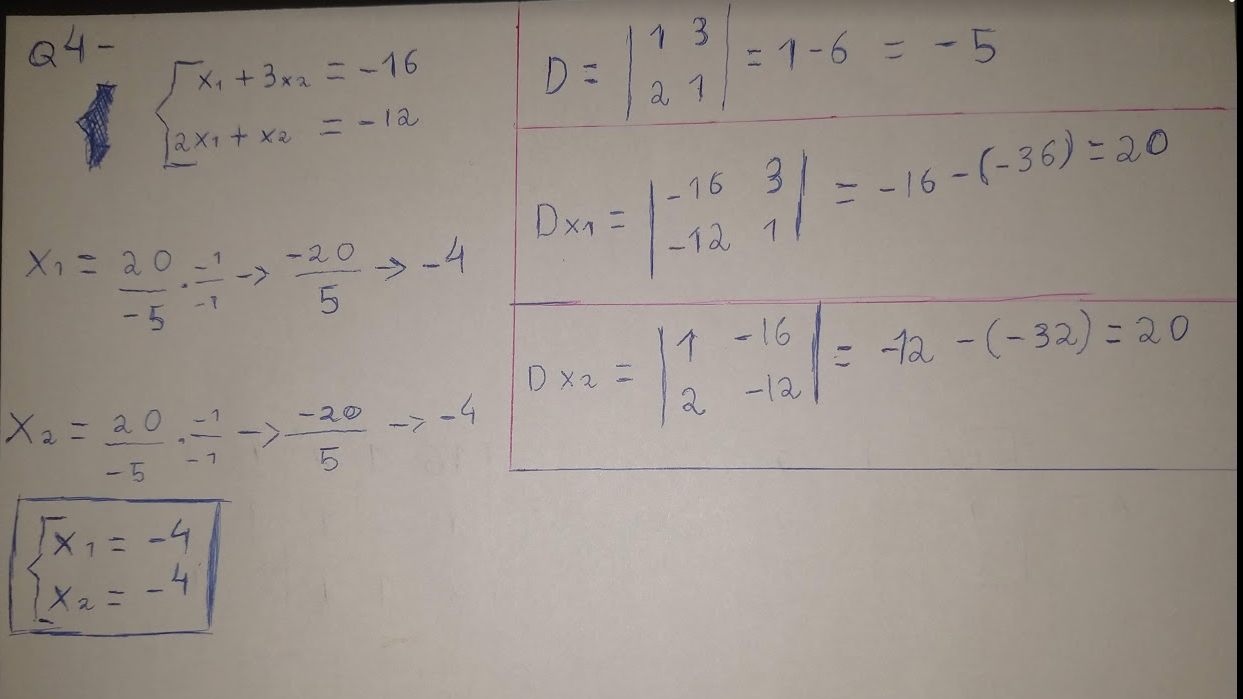 Q4-
x₁ + 3x₂ = -16
2x₁ + x₂ = -12
X₁ = 20/-5 · -1/-1 -> -20/5 -> -4
X₂ = 20/-5 · -1/-1 -> -20/5 -> -4
x₁ = -4
x₂ = -4
D = |1 3| = 1-6 = -5
|2 1|
Dx₁ = |-16 3| = -16 -(-36) = 20
|-12 1|
Dx₂ = |1 -16| = -12 -(-32) = 20
|2 -12|